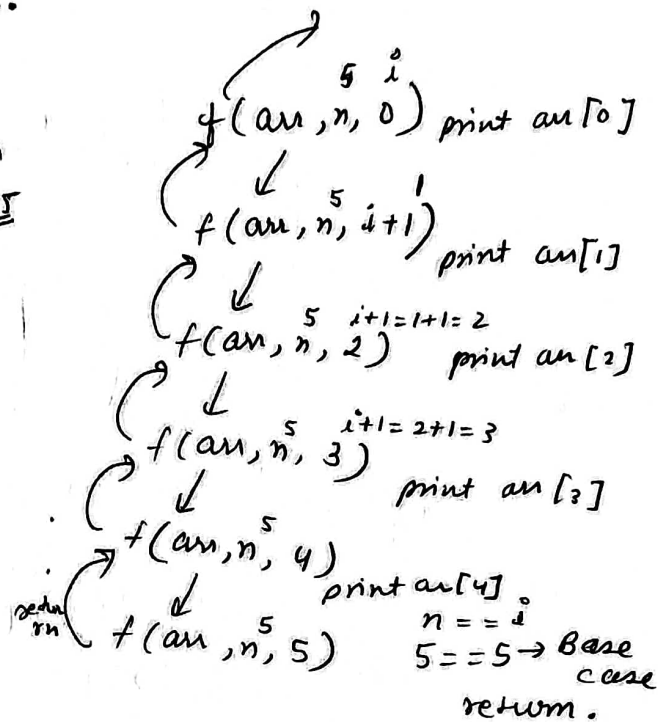 5 i
f(arr, n, 0) print arr[0]
5
5 1
f(arr, n, i+1)
print arr[1]
5 i+1=1+1=2
f(arr, n, 2) print arr[2]
5 i+1=2+1=3
f(arr, n, 3)
print arr[3]
5
f(arr, n, 4)
print arr[4]
n == i
5
f(arr, n, 5) 5==5→ Base
case
return.